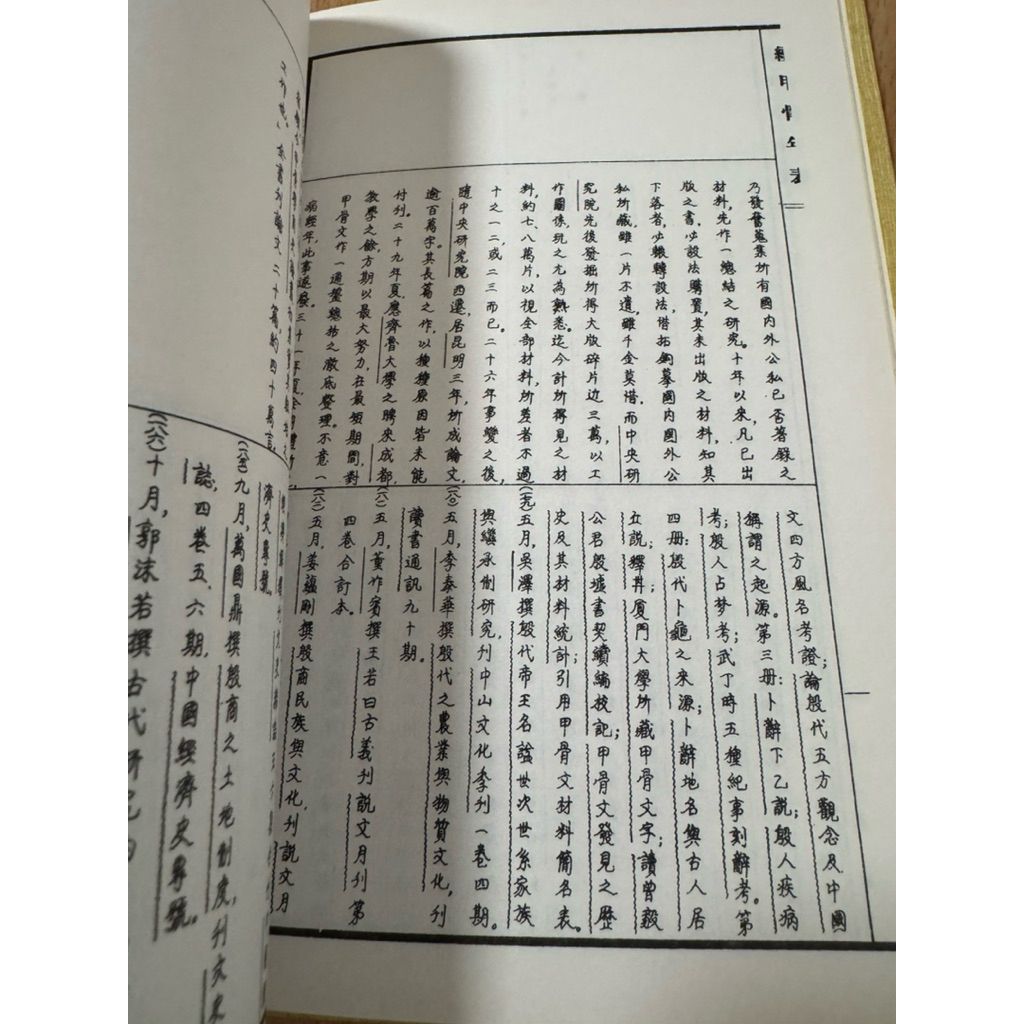 乃發奮蒐集所有國內外公私已否著錄之
材料,先作一總結之研究。十年以來,凡已出
版之書,必設法購置,其未出版之材料,知其
下落者,必輾轉設法,借拓鉤摹國內國外公
私所藏雖一片不遺,雖千金莫惜。而中央研
究院先後發掘所得大版碎片近三萬,以工
作關係,玩之尤為熟悉。迄今計所得見之材
料,約七、八萬片,以視全部材料,所差者不過
十之一二,或二三而已。二十六年事變之後,
隨中央研究院西遷,居昆明三年,所成論文,
逾百萬字。其長篇之作,以種種原因皆未能
付刊。二十九年夏,應齊魯大學之聘來成都,
教學之餘,方期以最大努力,在最短期間,對
甲骨文作一通盤總括之澈底整理。不意一
病經年,此事遂廢。三十一年夏,
文四方風名考證;論殷代五方觀念及中國
稱謂之起源。第三冊:卜辭下乙說;殷人疾病
考;殷人占夢考;武丁時五種紀事刻辭考。第
四冊:殷代卜龜之來源;卜辭地名與古人居
丘說;釋;廈門大學所藏甲骨文字;讀曾毅
公君殷墟書契續編校記;甲骨文發見之歷
史及其材料統計;引用甲骨文材料簡名表。
五月,吳澤撰殷代帝王名謚世次世系家族
與繼承制研究,刊中山文化季刊一卷四期。
(八〇)五月,李泰華撰殷代之農業與物質文化,刊
讀書通訊九十期。
(八一)五月,董作賓撰王若曰古義刊說文月刊第
四卷合訂本。
(八二)五月,姜蘊剛撰殷商民族與文化,刊說文月
濟史專號。
九月,萬國鼎撰殷商之土地制度,刊文史
誌,四卷五、六期,中國經濟史專號。
(八六)十月,郭沫若撰古代研究